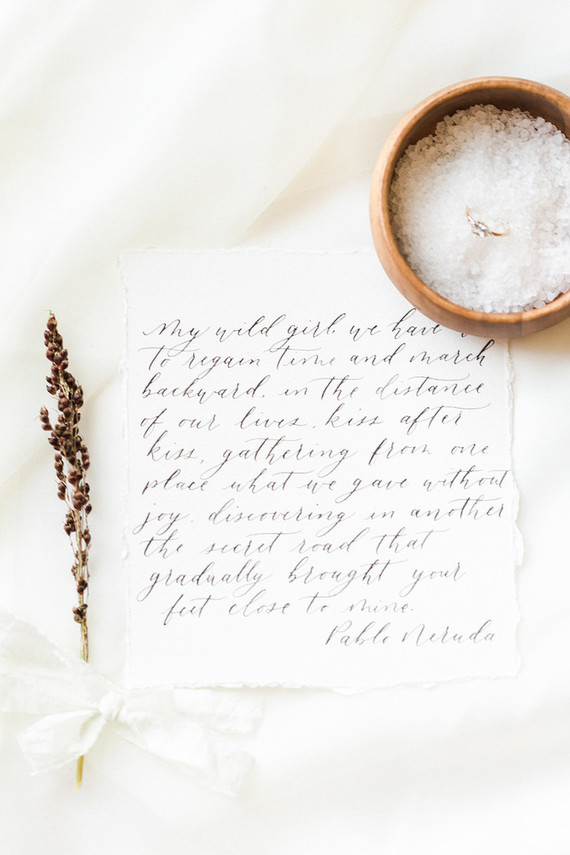 My wild girl, we have
to regain time and march
backward, in the distance
of our lives, kiss after
kiss, gathering from one
place what we gave without
joy, discovering in another
the secret road that
gradually brought your
feet close to mine.
Pablo Neruda